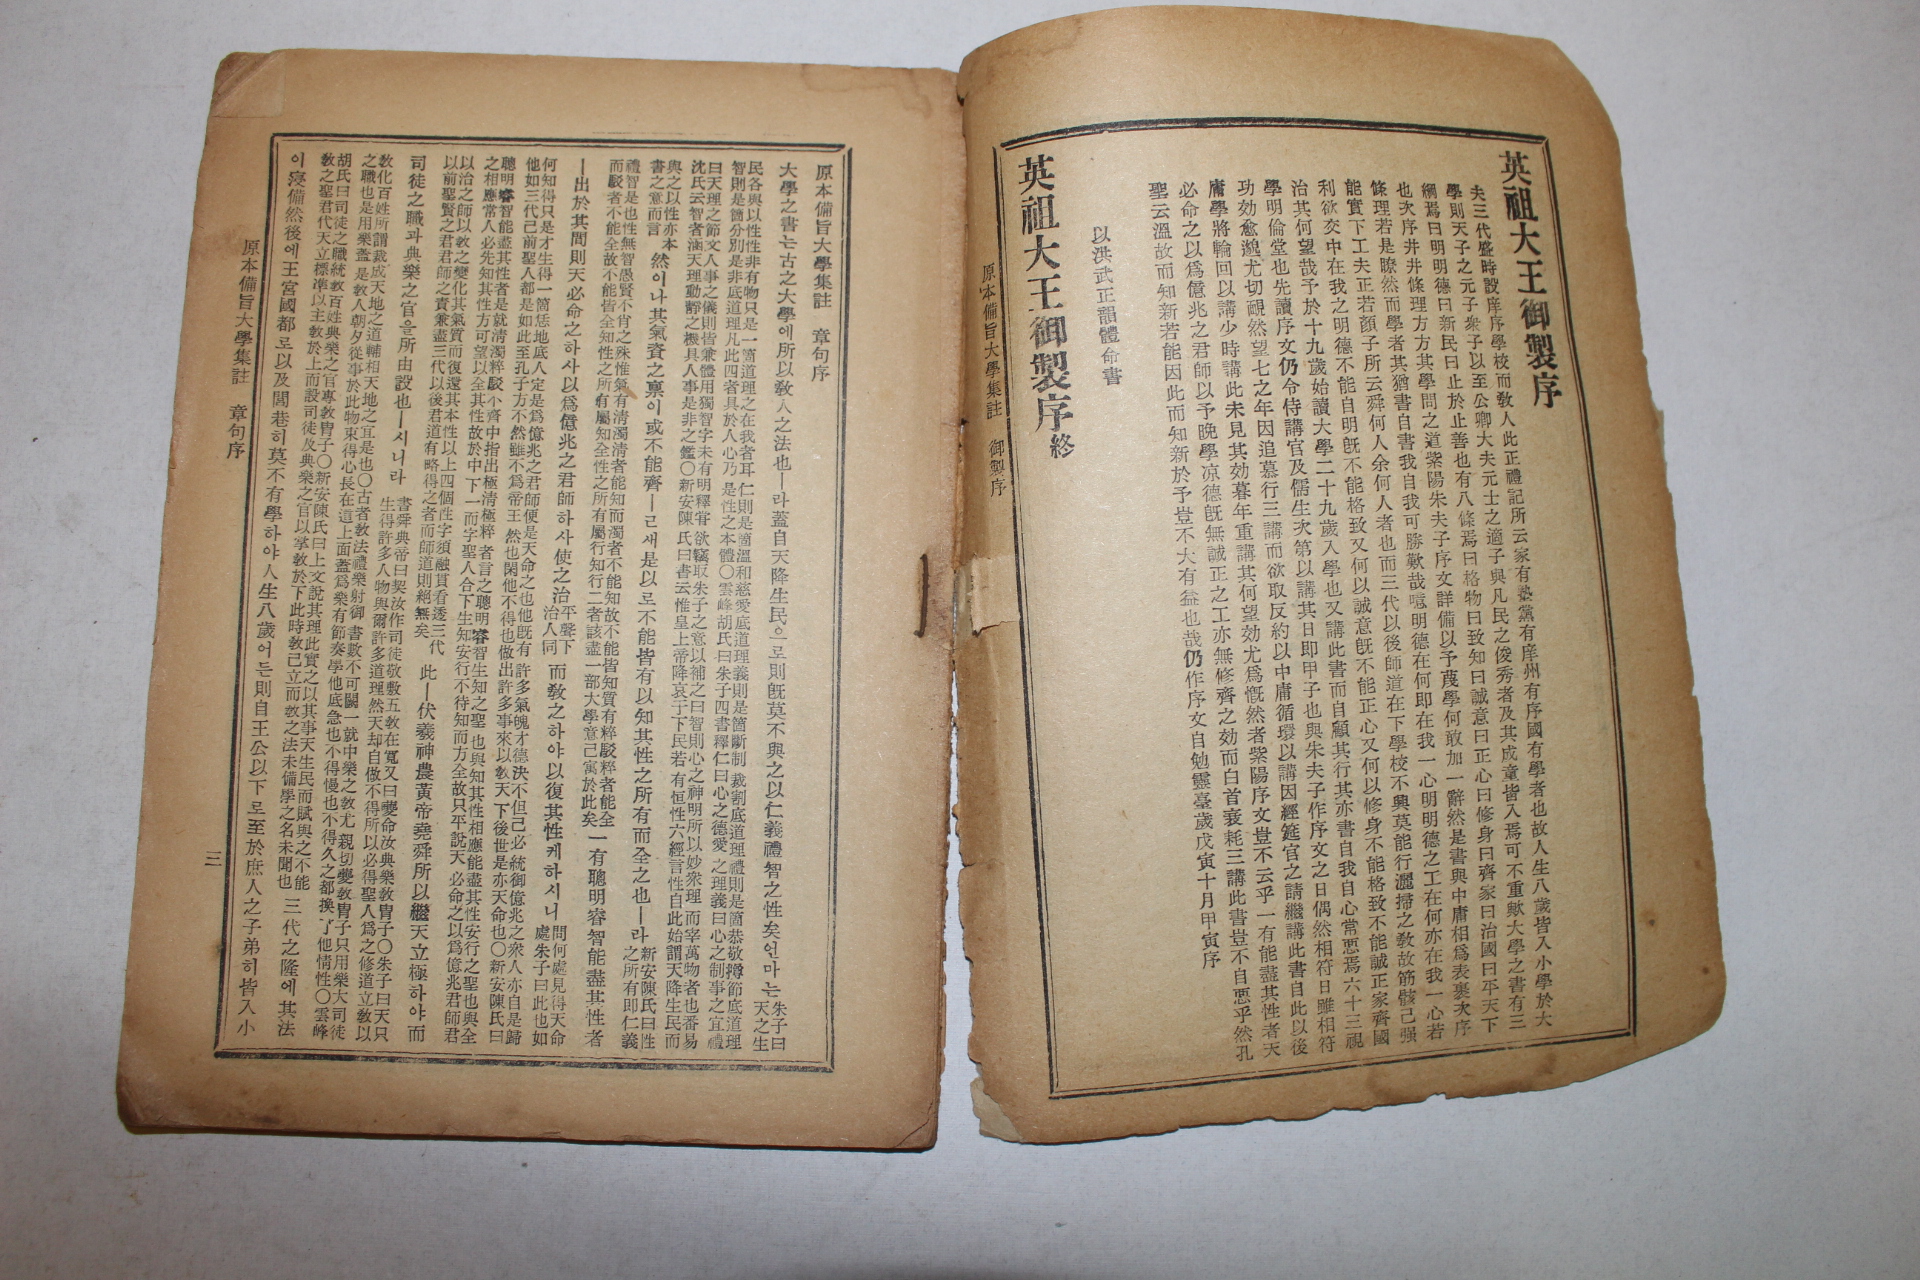 英祖大王御製序
夫三代盛時設庠序學校而敎人此正禮記所云家有塾黨有庠州有序國有學者也故人生八歲皆入小學於大
學則天子之元子衆子以至公卿大夫元士之適子與凡民之俊秀者及其成童皆入焉可不重歟大學之書有三
綱焉曰明明德曰新民曰止於止善也有八條焉曰格物曰致知曰誠意曰正心曰修身曰齊家曰治國曰平天下
也次序井井條理方方其學問之道紫陽朱夫子序文詳備以予蔑學何敢加一辭然是書與中庸相爲表裏次序
條理若是瞭然而學者其猶書自書我自我可勝歎哉噫明德在何卽在我一心明明德之工在何亦在我一心若
能實下工夫正若顔子所云舜何人余何人者也而三代以後師道在下學校不興莫能行灑掃之敎故筋骸己强
利欲交中在我之明德不能自明旣不能格致又何以誠意旣不能正心又何以修身不能格致不能誠正家齊國
治其何望哉予於十九歲始讀大學二十九歲入學也又講此書而自顧其行其亦書自我自心常恧焉六十三視
學明倫堂也先讀序文仍令侍講官及儒生次第以講其日卽甲子也與朱夫子作序文之日偶然相符日雖相符
功効愈邈尤切靦然望七之年因追慕行三講而欲取反約以中庸循環以講因經筵官之請繼講此書自此以後
庸學將輪回以講少時講此未見其効暮年重講其何望効尤爲慨然者紫陽序文豈不云乎一有能盡其性者天
必命之以爲億兆之君師以予晩學凉德旣無誠正之工亦無修齊之効而白首衰耗三講此書豈不自恧乎然孔
聖云溫故而知新若能因此而知新於予豈不大有益也哉仍作序文自勉靈臺歲戊寅十月甲寅序
以洪武正韻體命書
英祖大王御製序終
原本備旨大學集註 御製序
原本備旨大學集註 章句序
大學之書는古之大學에所以敎人之法也ㅣ라蓋自天降生民으로則旣莫不與之以仁義禮智之性矣언마는
朱子曰天之生
民各與以性性非有物只是一箇道理之在我者耳仁則是箇溫和慈愛底道理義則是箇斷制裁割底道理禮則是箇恭敬撙節底道理
智則是箇分別是非底道理凡此四者具於人心乃是性之本體〇雲峰胡氏曰朱子四書釋仁曰心之德愛之理義曰心之制事之宜禮
曰天理之節文人事之儀則皆兼體用獨智字未有明釋嘗欲竊取朱子之意以補之曰智則心之神明所以妙衆理而宰萬物者也番易
沈氏云智者涵天理動靜之機具人事是非之鑑〇新安陳氏曰書云惟皇上帝降衷于下民若有恒性六經言性自此始謂天降生民而
與之以性亦本
書之意而言
然이나其氣質之稟이或不能齊ㅣㄹ새是以로不能皆有以知其性之所有而全之也ㅣ라
新安陳氏曰性
之所有卽仁義
禮智是也性無智愚賢不肖之殊惟氣有淸濁淸者能知而濁者不能知故不能皆知質有粹駁粹者能全
而駁者不能全故不能皆全知性之所有屬知全性之所有屬行知行二者該盡一部大學意己寓於此矣
一有聰明睿智能盡其性者
ㅣ出於其間則天必命之하사以爲億兆之君師하사使之治
平聲下
治人同
而敎之하야以復其性케하시니
問何處見得天命
處朱子曰此也如
何知得只是才生得一箇恁地底人定是爲億兆之君師便是天命之也他旣有許多氣魄才德決不但己必統御億兆之衆人亦自是歸
他如三代己前聖人都是如此至孔子方不然雖不爲帝王然也閑他不得也做出許多事來以敎天下後世是亦天命也〇新安陳氏曰
聰明睿智能盡其性者是就淸濁粹駁小齊中指出極淸極粹者言之聰明睿智生知之聖也與知其性相應能盡其性安行之聖也與全
之相應常人必先知其性方可望以全其性故於中下一而字聖人合下生知安行不待知而方全故只平說天必命之以爲億兆君師君
以治之師以敎之變化其氣質而復還其本性以上四個性字須融貫看透三代
以前聖賢之君君師之責兼盡三代以後君道有略得之者而師道則絕無矣
此ㅣ伏羲神農黃帝堯舜所以繼天立極하야而
司徒之職과典樂之官을所由設也ㅣ시니라
書舜典帝曰契汝作司徒敬敷五敎在寬又曰夔命汝典樂敎胄子〇朱子曰天只
生得許多人物與爾許多道理然天却自做不得所以必得聖人爲之修道立敎以
敎化百姓所謂裁成天地之道輔相天地之宜是也〇古者敎法禮樂射御書數不可闕一就中樂之敎尤親切夔敎胄子只用樂大司徒
之職也是用樂蓋是敎人朝夕從事於此物束得心長在這上面蓋爲樂有節奏學他底急也不得慢也不得久之都換了他情性〇雲峰
胡氏曰司徒之職統敎百姓典樂之官專敎胄子〇新安陳氏曰上文說其理此實之以其事天生民而賦與之不能
敎之聖君代天立標準以主敎於上而設司徒及典樂之官以掌敎於下此時敎己立而敎之法未備學之名未聞也
三代之隆에其法
이寖備然後에王宮國都로以及閭巷히莫不有學하야人生八歲어든則自王公以下로至於庶人之子弟히皆入小
原本備旨大學集註 章句序
三